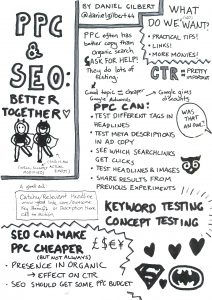 PPC
&
SEO:
BETTER
TOGETHER
BY DANIEL GILBERT
@danielgilbert44
PPC often has
better copy than
organic search
ASK FOR HELP!
They do lots of
testing
Good topic = cheaper
Google Adwords
Google gives
discounts
WHAT
DO WE WANT?
PRACTICAL TIPS!
LINKS!
MORE MOVIES!
CTR = PRETTY
IMPORTANT
PPC CAN:
TEST DIFFERENT TAGS IN
HEADLINES
TEST META DESCRIPTIONS
IN AD COPY
SEE WHICH SEARCHLINKS
GET CLICKS
TEST HEADLINES & IMAGES
SHARE RESULTS FROM
PREVIOUS EXPERIMENTS
WAS
THAT AN
OWL?
A good ad:
Catchy/Relevant Headline
Key Benefits in Description Here
Call to Action
KEYWORD TESTING
CONCEPT TESTING
SEO CAN MAKE
PPC CHEAPER
(BUT NOT ALWAYS)
£$€¥
PRESENCE IN ORGANIC
→ EFFECT ON CTR
SEO SHOULD GET SOME PPC BUDGET